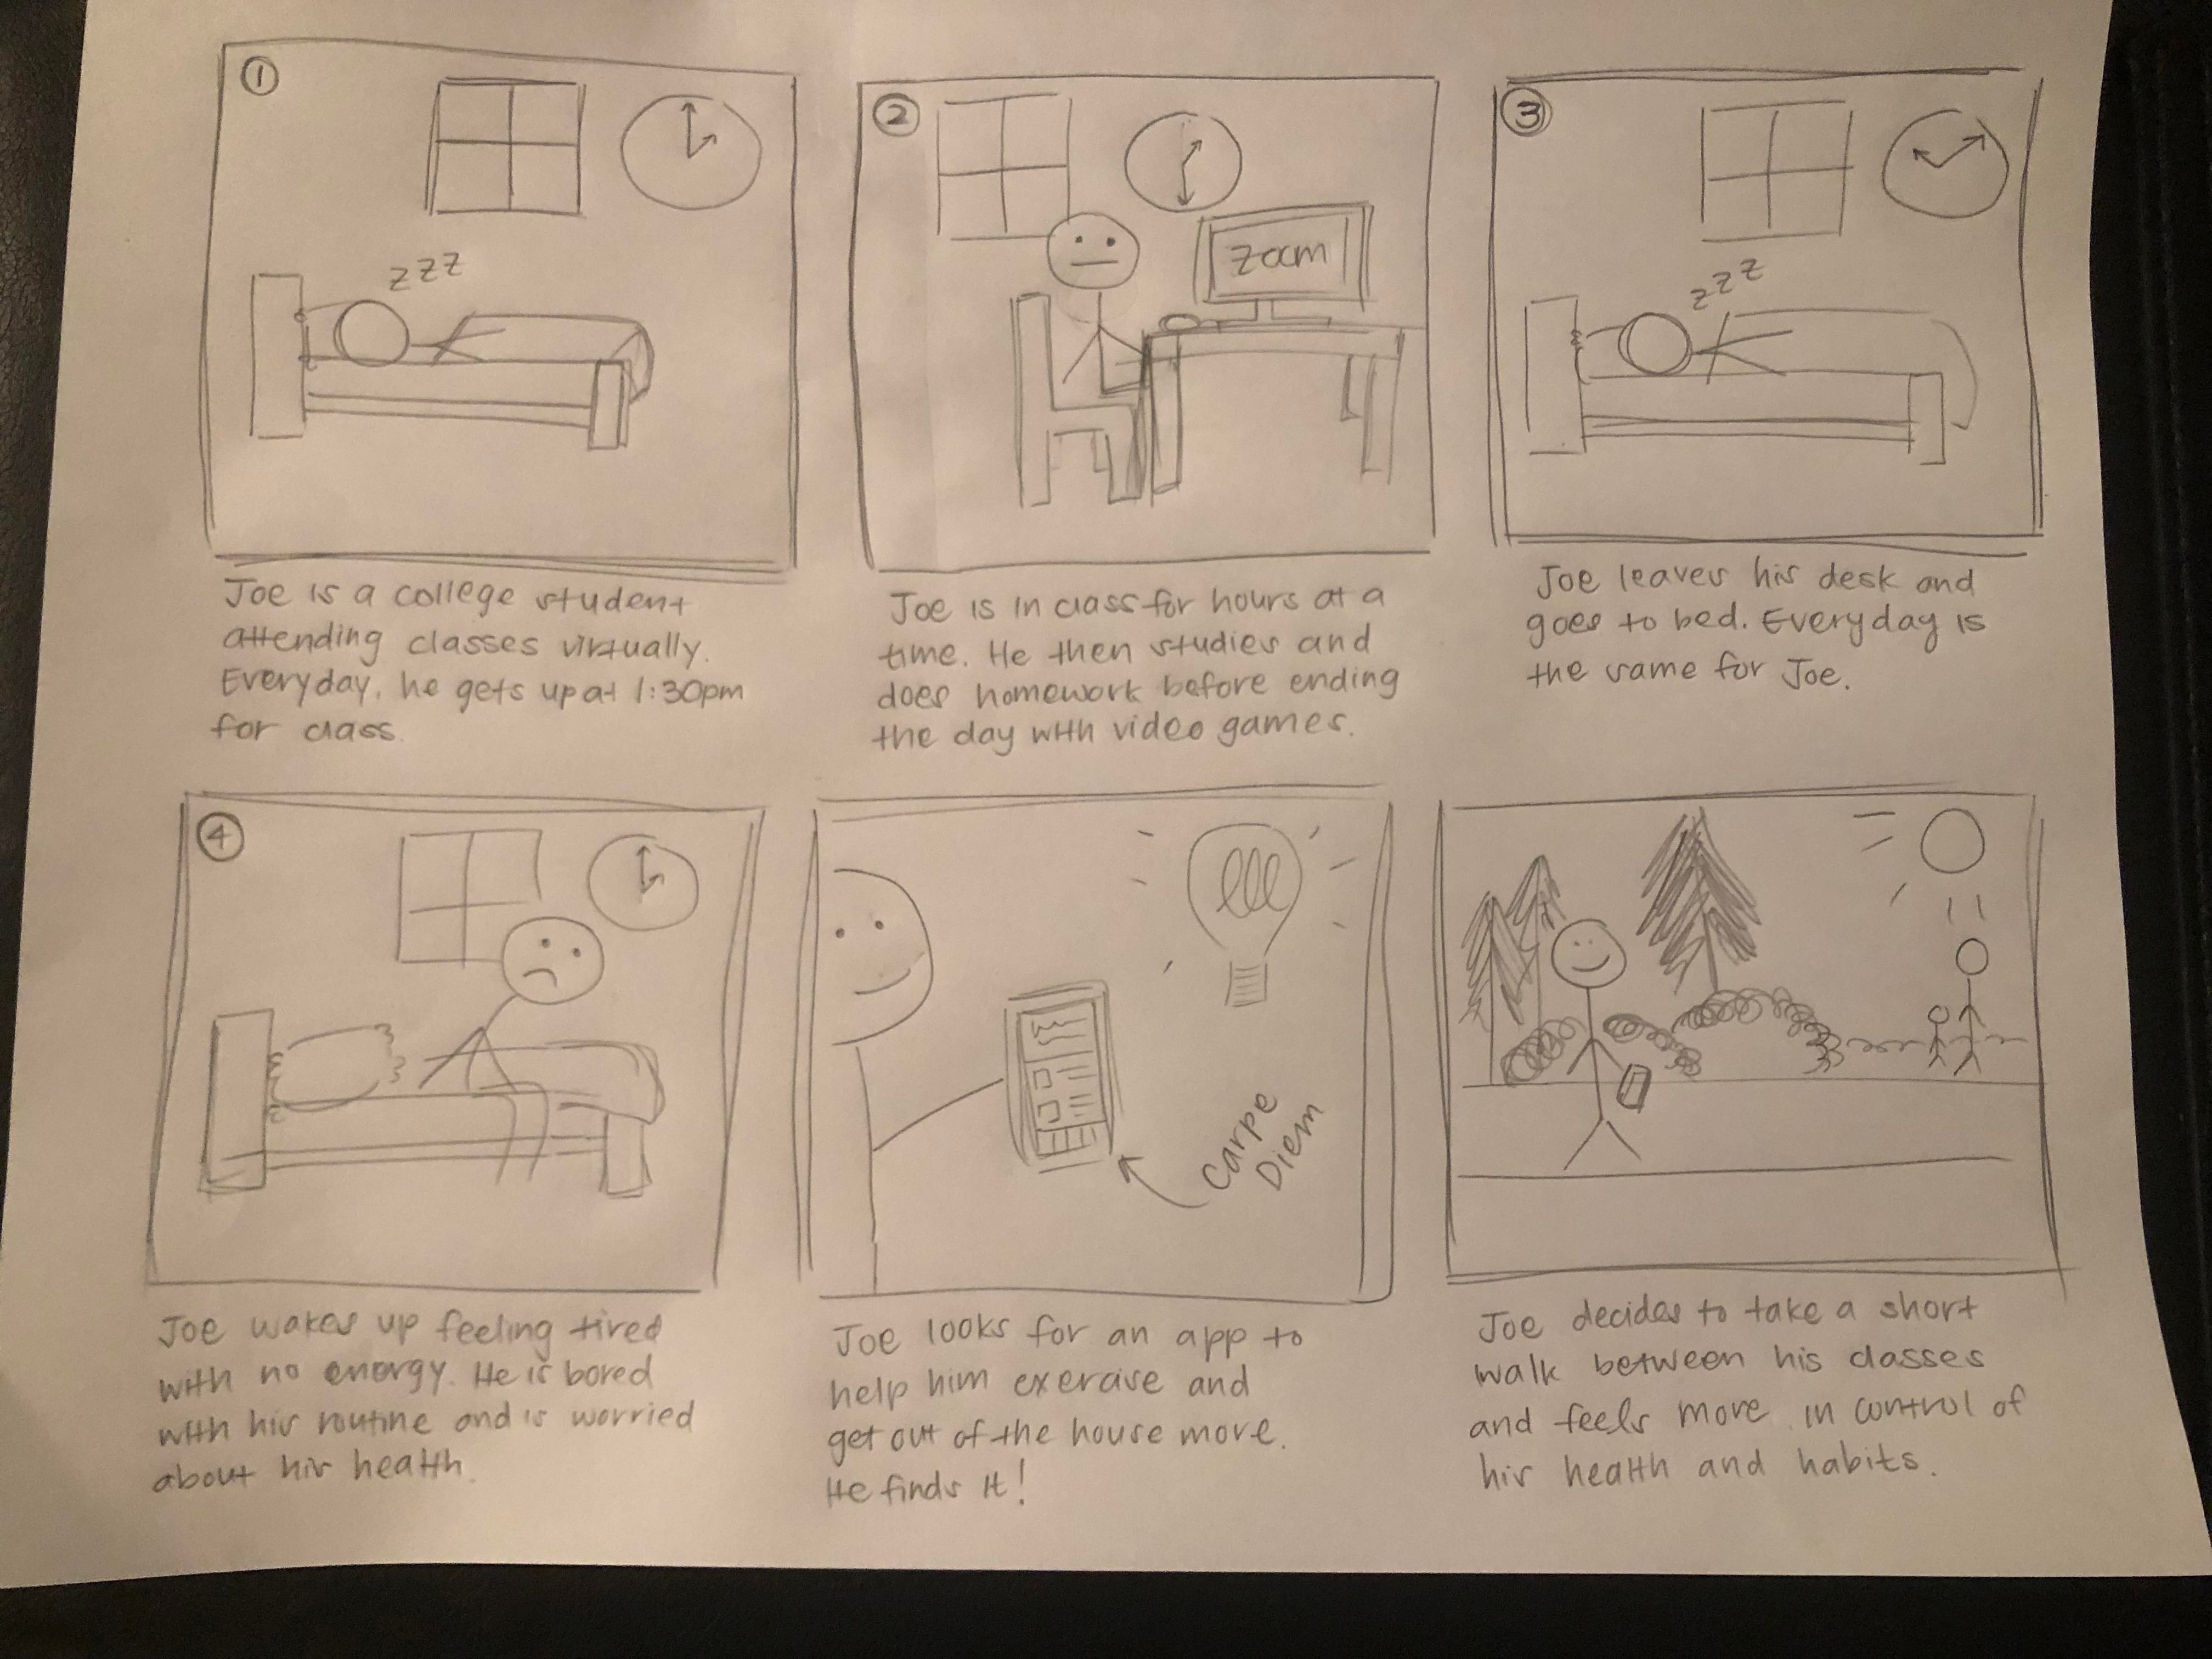 1
z z z
Joe is a college student
attending classes virtually.
Everyday, he gets up at 1:30pm
for class.
2
zoom
Joe is in class for hours at a
time. He then studies and
does homework before ending
the day with video games.
3
z z z
Joe leaves his desk and
goes to bed. Everyday is
the same for Joe.
4
Joe wakes up feeling tired
with no energy. He is bored
with his routine and is worried
about his health.
Carpe
Diem
Joe looks for an app to
help him exercise and
get out of the house more.
He finds it!
Joe decides to take a short
walk between his classes
and feels more in control of
his health and habits.